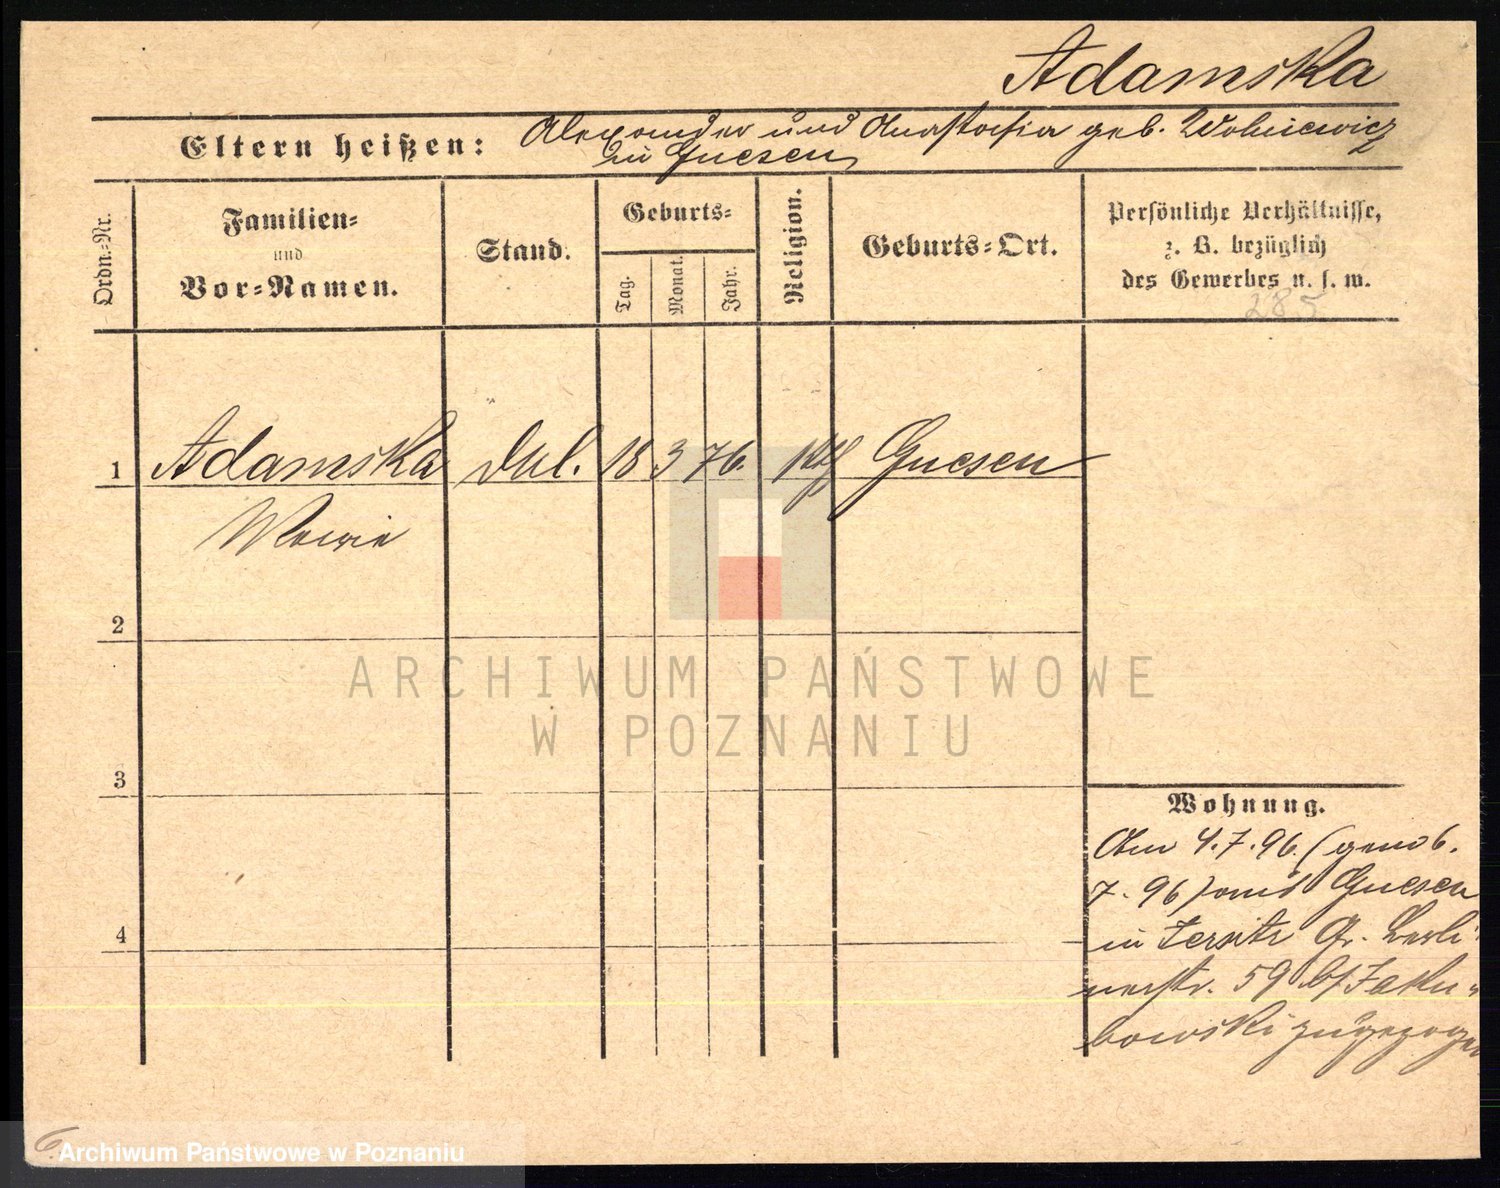 Adamska
Eltern heißen: Alexander und Anastasia geb. Wolniewicz
zu Gnesen
Ordn.-Nr.
Familien-
und
Vor-Namen.
Stand.
Geburts-
Tag.
Monat.
Jahr.
Religion.
Geburts-Ort.
Persönliche Verhältnisse,
z. B. bezüglich
des Gewerbes u. s. w.
285
1 Adamska 18 3 76. kth Gnesen
Marie
2
3
4
Wohnung.
Am 4.7.96. (gem 6.
7. 96) aus Gnesen
in Jersitz Gr. Berli-
nerstr. 59 b/ Jaku-
bowski zugezogen
6.
ARCHIWUM PAŃSTWOWE
W POZNANIU
Archiwum Państwowe w Poznaniu